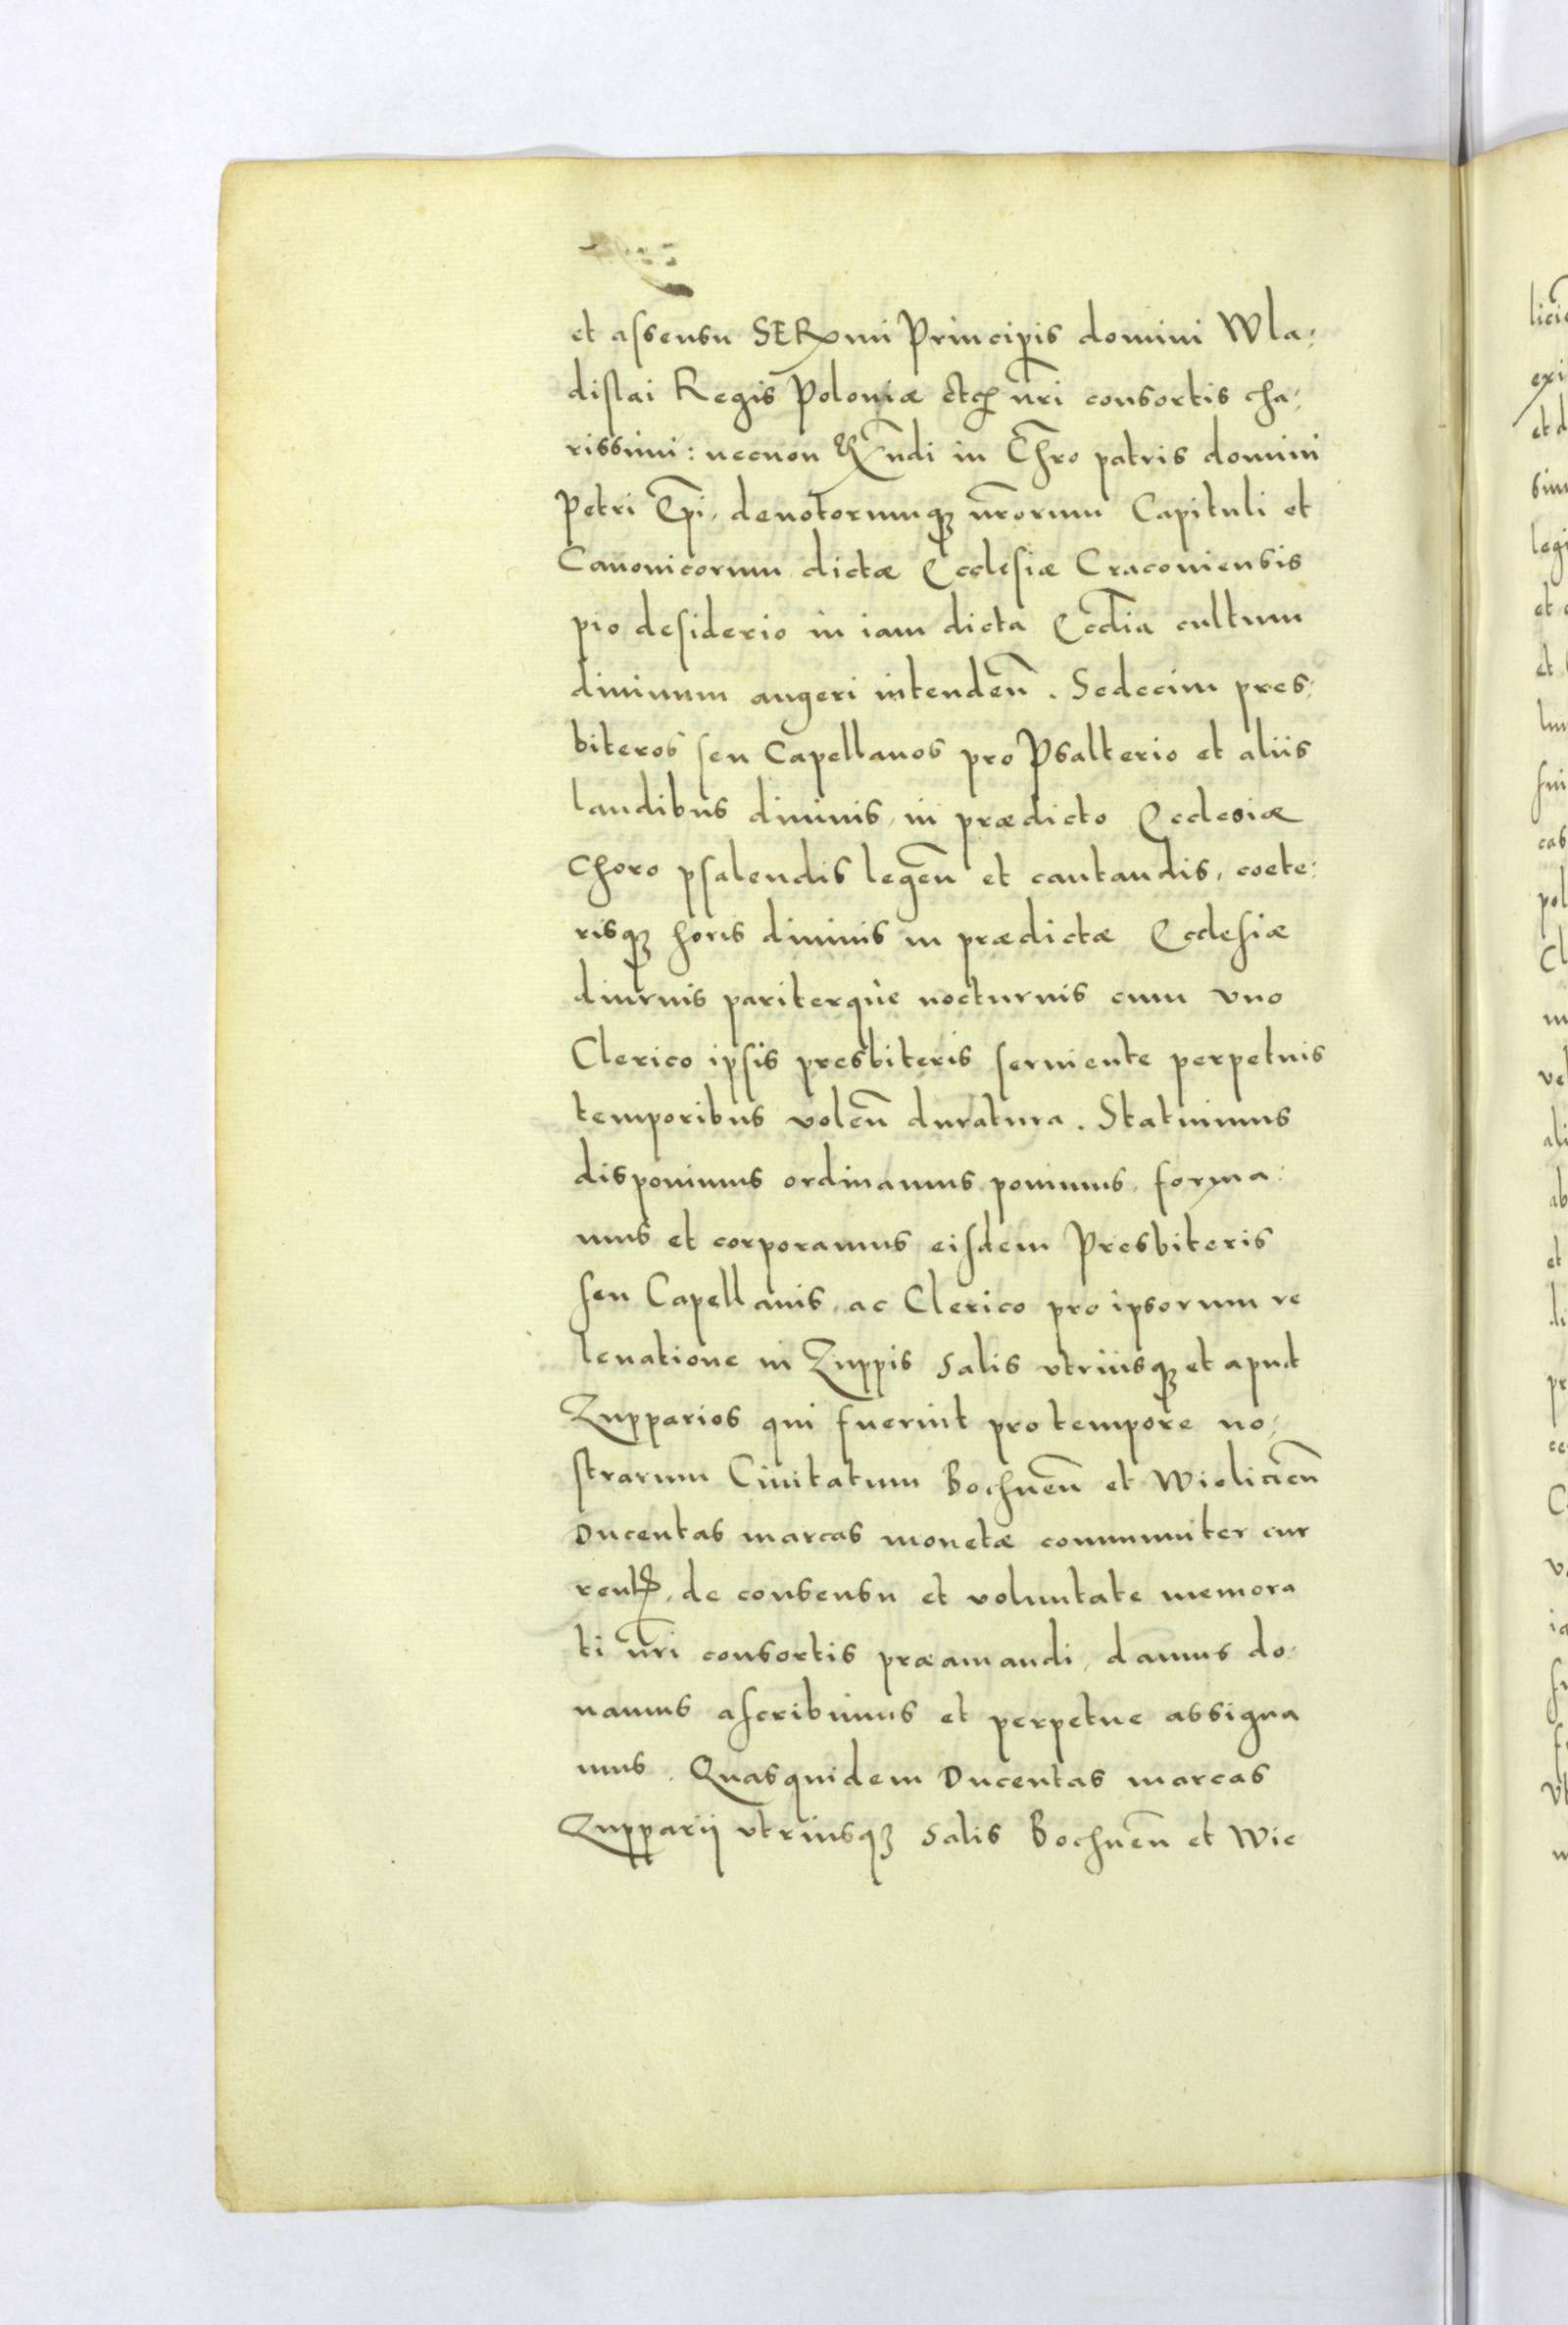 et assensu SERmi Principis domini Wla-
dislai Regis Poloniæ etc nri consortis cha-
rissimi: necnon Rndi in Chro patris domini
Petri Epi, deuotorumq3 nrorum Capituli et
Canonicorum dictæ Ecclesiæ Cracouiensis
pio desiderio in iam dicta Ecclia cultum
diuinum augeri intendeñ. Sedecim pres-
biteros seu Capellanos pro Psalterio et aliis
laudibus diuinis, in prædicto Ecclesiæ
choro psalendis legeñ et cantandis, coete-
risq3 horis diuinis in prædictæ Ecclesiæ
diurnis pariterque nocturnis cum vno
Clerico ipsis presbiteris seruiente perpetuis
temporibus voleñ duratura. Statuimus
disponimus ordinamus ponimus, forma-
mus et corporamus eisdem Presbiteris
seu Capellanis, ac Clerico pro ipsorum re
leuatione in Zuppis salis vtriusq3 et aput
Zupparios qui fuerint pro tempore no-
strarum Ciuitatum Bochneñ et Wielicieñ
Ducentas marcas monetæ communiter cur
rent, de consensu et voluntate memora
ti nri consortis præamandi, damus do-
namus ascribimus et perpetue assigna
mus. Quasquidem Ducentas marcas
Zupparij vtriusq3 salis Bochneñ et Wie